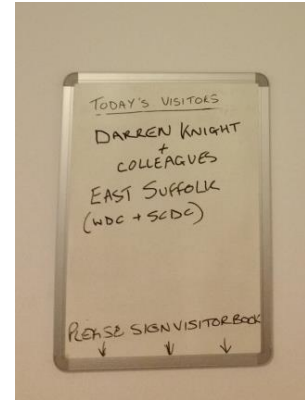 TODAY'S VISITORS
DARREN KNIGHT
+
COLLEAGUES
EAST SUFFOLK
(WDC + SCDC)
PLEASE SIGN VISITOR BOOK
↓ ↓ ↓